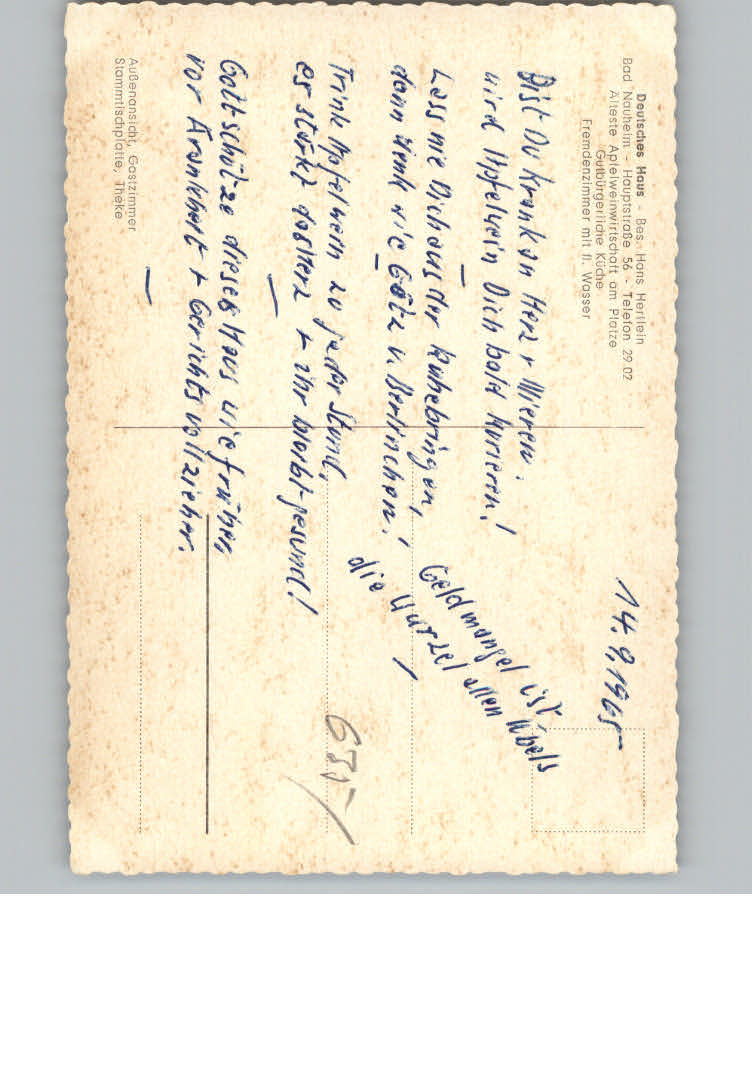 Deutsches Haus - Bes. Hans Hertlein
Bad Nauheim - Hauptstraße 56 - Telefon 29 02
Älteste Apfelweinwirtschaft am Platze
Gutbürgerliche Küche
Fremdenzimmer mit fl. Wasser
14.9.1965
Bist Du krank an Herz + Nieren.
wird Apfelwein Dich bald kurieren!
Lass nie Dich aus der Ruhe bringen,
dann denk wie Götz v. Berlinchen!
Trink Apfelwein zu jeder Stund,
es stärkt das Herz + ihr bleibt gesund!
Gott schütze dieses Haus wie früher
vor Krankheit + Gerichtsvollzieher.
Geldmangel ist
die Wurzel allen Übels
Außenansicht, Gastzimmer
Stammtischplatte, Theke